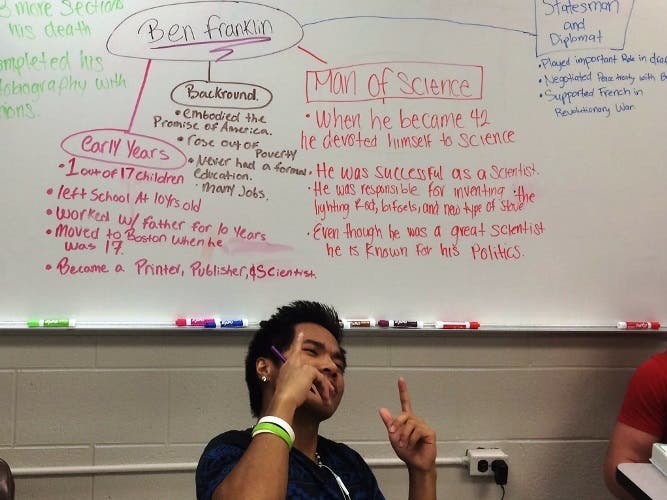 3 more sections
his death
completed his
tobiography with
ions.
Ben Franklin
Statesman
and
Diplomat
• Played important Role in dra
• Negotiated Peace treaty with B
• Supported French in
Revolutionary War.
Backround.
• embodied the
Promise of America.
• rose out of
Poverty
• Never had a formal
education.
• Many Jobs.
Man of Science
• When he became 42
he devoted himself to science
• He was successful as a scientist.
• He was responsible for inventing the
lighting Rod, bifocls, and new type of stove
• Even though he was a great scientist
he is known for his Politics.
early Years
• 1 out of 17 children
• left School At 10 yrs old
• worked w/ father for 10 Years
• Moved to Boston when he
was 17.
• Became a Printer, Publisher, & Scientist